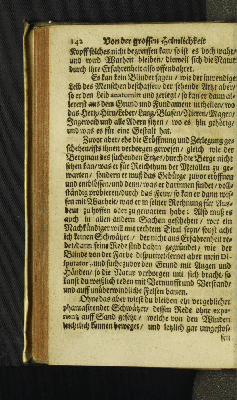 142 Von der grossen Heimlichkeit
Kopff solches nicht begreiffen kan/ so ist es doch wahr/
und wird Warheit bleiben/ dieweil sich die Natur
durch ihre Erfahrenheit also offenbahret.
Es kan kein Blinder sagen/ wie der inwendige
Leib des Menschen beschaffen/ der sehende Artzt aber/
so er den leib anatomirt und zerlegt/ so kan er dann al-
lererst aus dem Grund und Fundament urtheilen/ wo
das Hertz/ Hirn/ Leber/ Lung/ Blasen/ Nieren/ Magen/
Ingeweid und alle Adern sitzen/ wo es hin gehörig/
und was es für eine Gestalt hat.
Zuvor aber/ ehe die Eröffnung und Zerlegung ge-
schehen/ ists ihmen verborgen gewesen/ gleich wie der
Bergman des suchenden Ertzes/ durch die Berge nicht
sehen kan/ was er für Reichthum der Metallen zu ge-
warten/ sondern er muß das Gebürge zuvor eröffnen
und entblössen/ und denn/ was er darinnen findet/ voll-
ständig probiren/ durch das Feur/ so kan er dann wis-
sen mit Warheit/ was er in seiner Rechnung für Aus-
beut zu hoffen oder zu gewarten habe: Also muß es
auch in allen andern Sachen geschehen/ wer ein
Nachkündiger will mit rechtem Titul seyn/ sonst acht
ich keinen Schwätzer/ der nicht aus Erfahrenheit re-
det/ dann seine Rede sind dahin gegründet/ wie der
Blinde von der Farbe disputiret/ lernet aber mein Di-
sputator/ und suche zuvor den Grund mit Augen und
Händen/ so die Natur verborgen mit sich bracht/ so
kanst du weißlich reden mit Vernunfft und Verstand/
und auff unüberwindliche Felsen bauen.
Ohne das aber wirst du bleiben ein vergeblicher
phantasirender Schwätzer/ dessen Rede ohne expe-
rientz auff Sand gesetzt/ welche von den Winden
leichtlich können beweget/ und letzlich gar umgestos-
sen